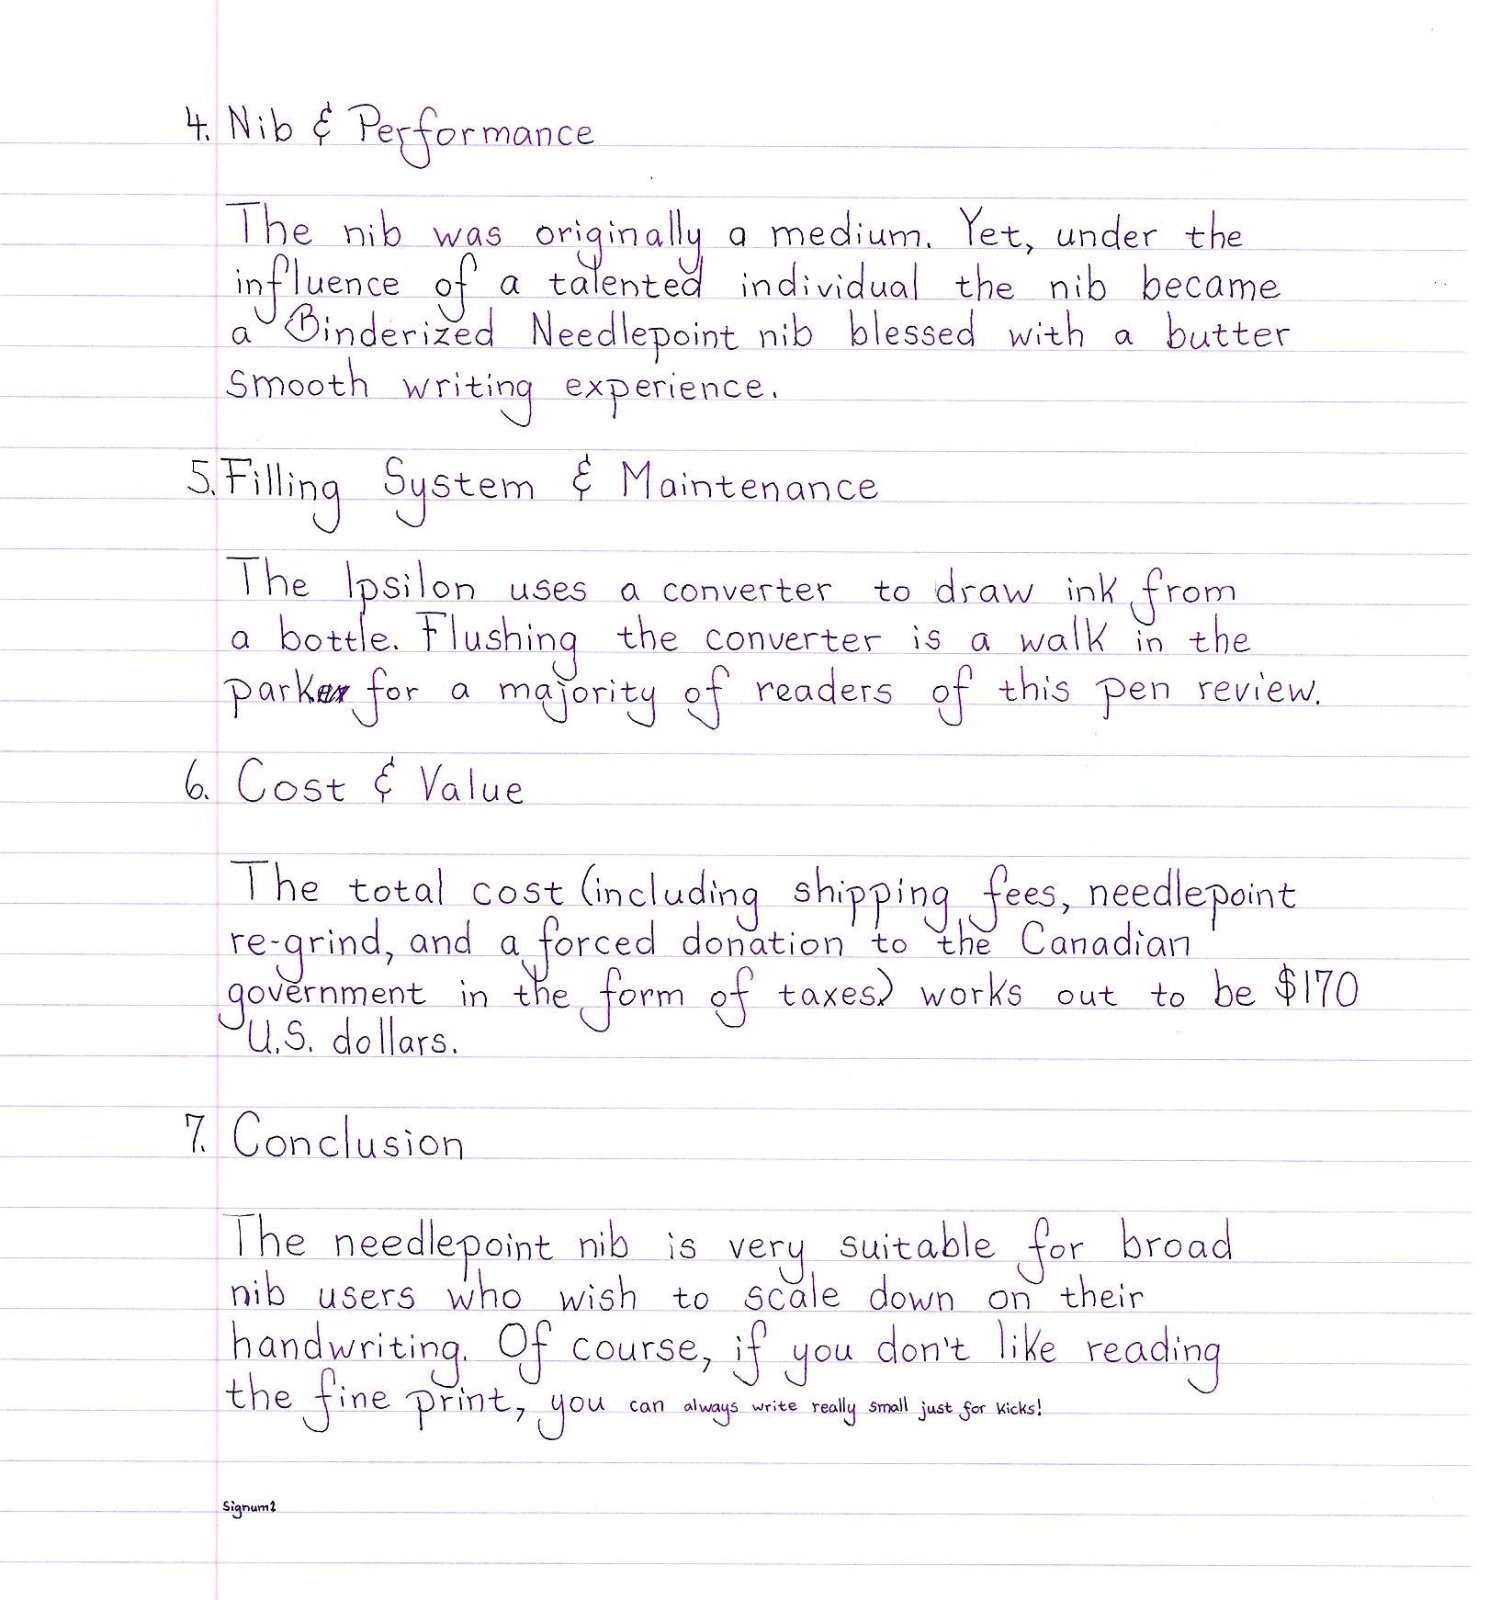 4. Nib & Performance
The nib was originally a medium. Yet, under the
influence of a talented individual the nib became
a Binderized Needlepoint nib blessed with a butter
smooth writing experience.
5. Filling System & Maintenance
The Ipsilon uses a converter to draw ink from
a bottle. Flushing the converter is a walk in the
park for a majority of readers of this pen review.
6. Cost & Value
The total cost (including shipping fees, needlepoint
re-grind, and a forced donation to the Canadian
government in the form of taxes) works out to be $170
U.S. dollars.
7. Conclusion
The needlepoint nib is very suitable for broad
nib users who wish to scale down on their
handwriting. Of course, if you don't like reading
the fine print, you can always write really small just for kicks!
Signum1